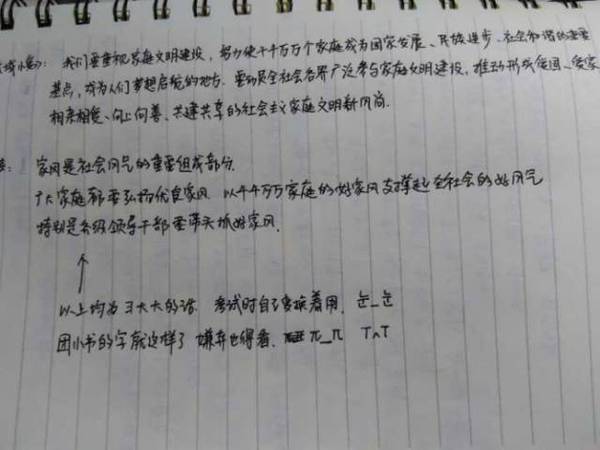 我们要重视家庭文明建设，努力使千千万万个家庭成为国家发展、民族进步、社会和谐的重要
基点，成为人们梦想启航的地方．要动员全社会各界广泛参与家庭文明建设，推动形成爱国、爱家
相亲相爱、向上向善、共建共享的社会主义家庭文明新风尚．
家风是社会风气的重要组成部分．
广大家庭都要弘扬优良家风 以千千万万家庭的好家风支撑起全社会的好风气
特别是各级领导干部要带头抓好家风．
以上均为习大大的话．考试时自己变换着用．눈_눈
团小书的字就这样了 嫌弃也得看． π_π TnT